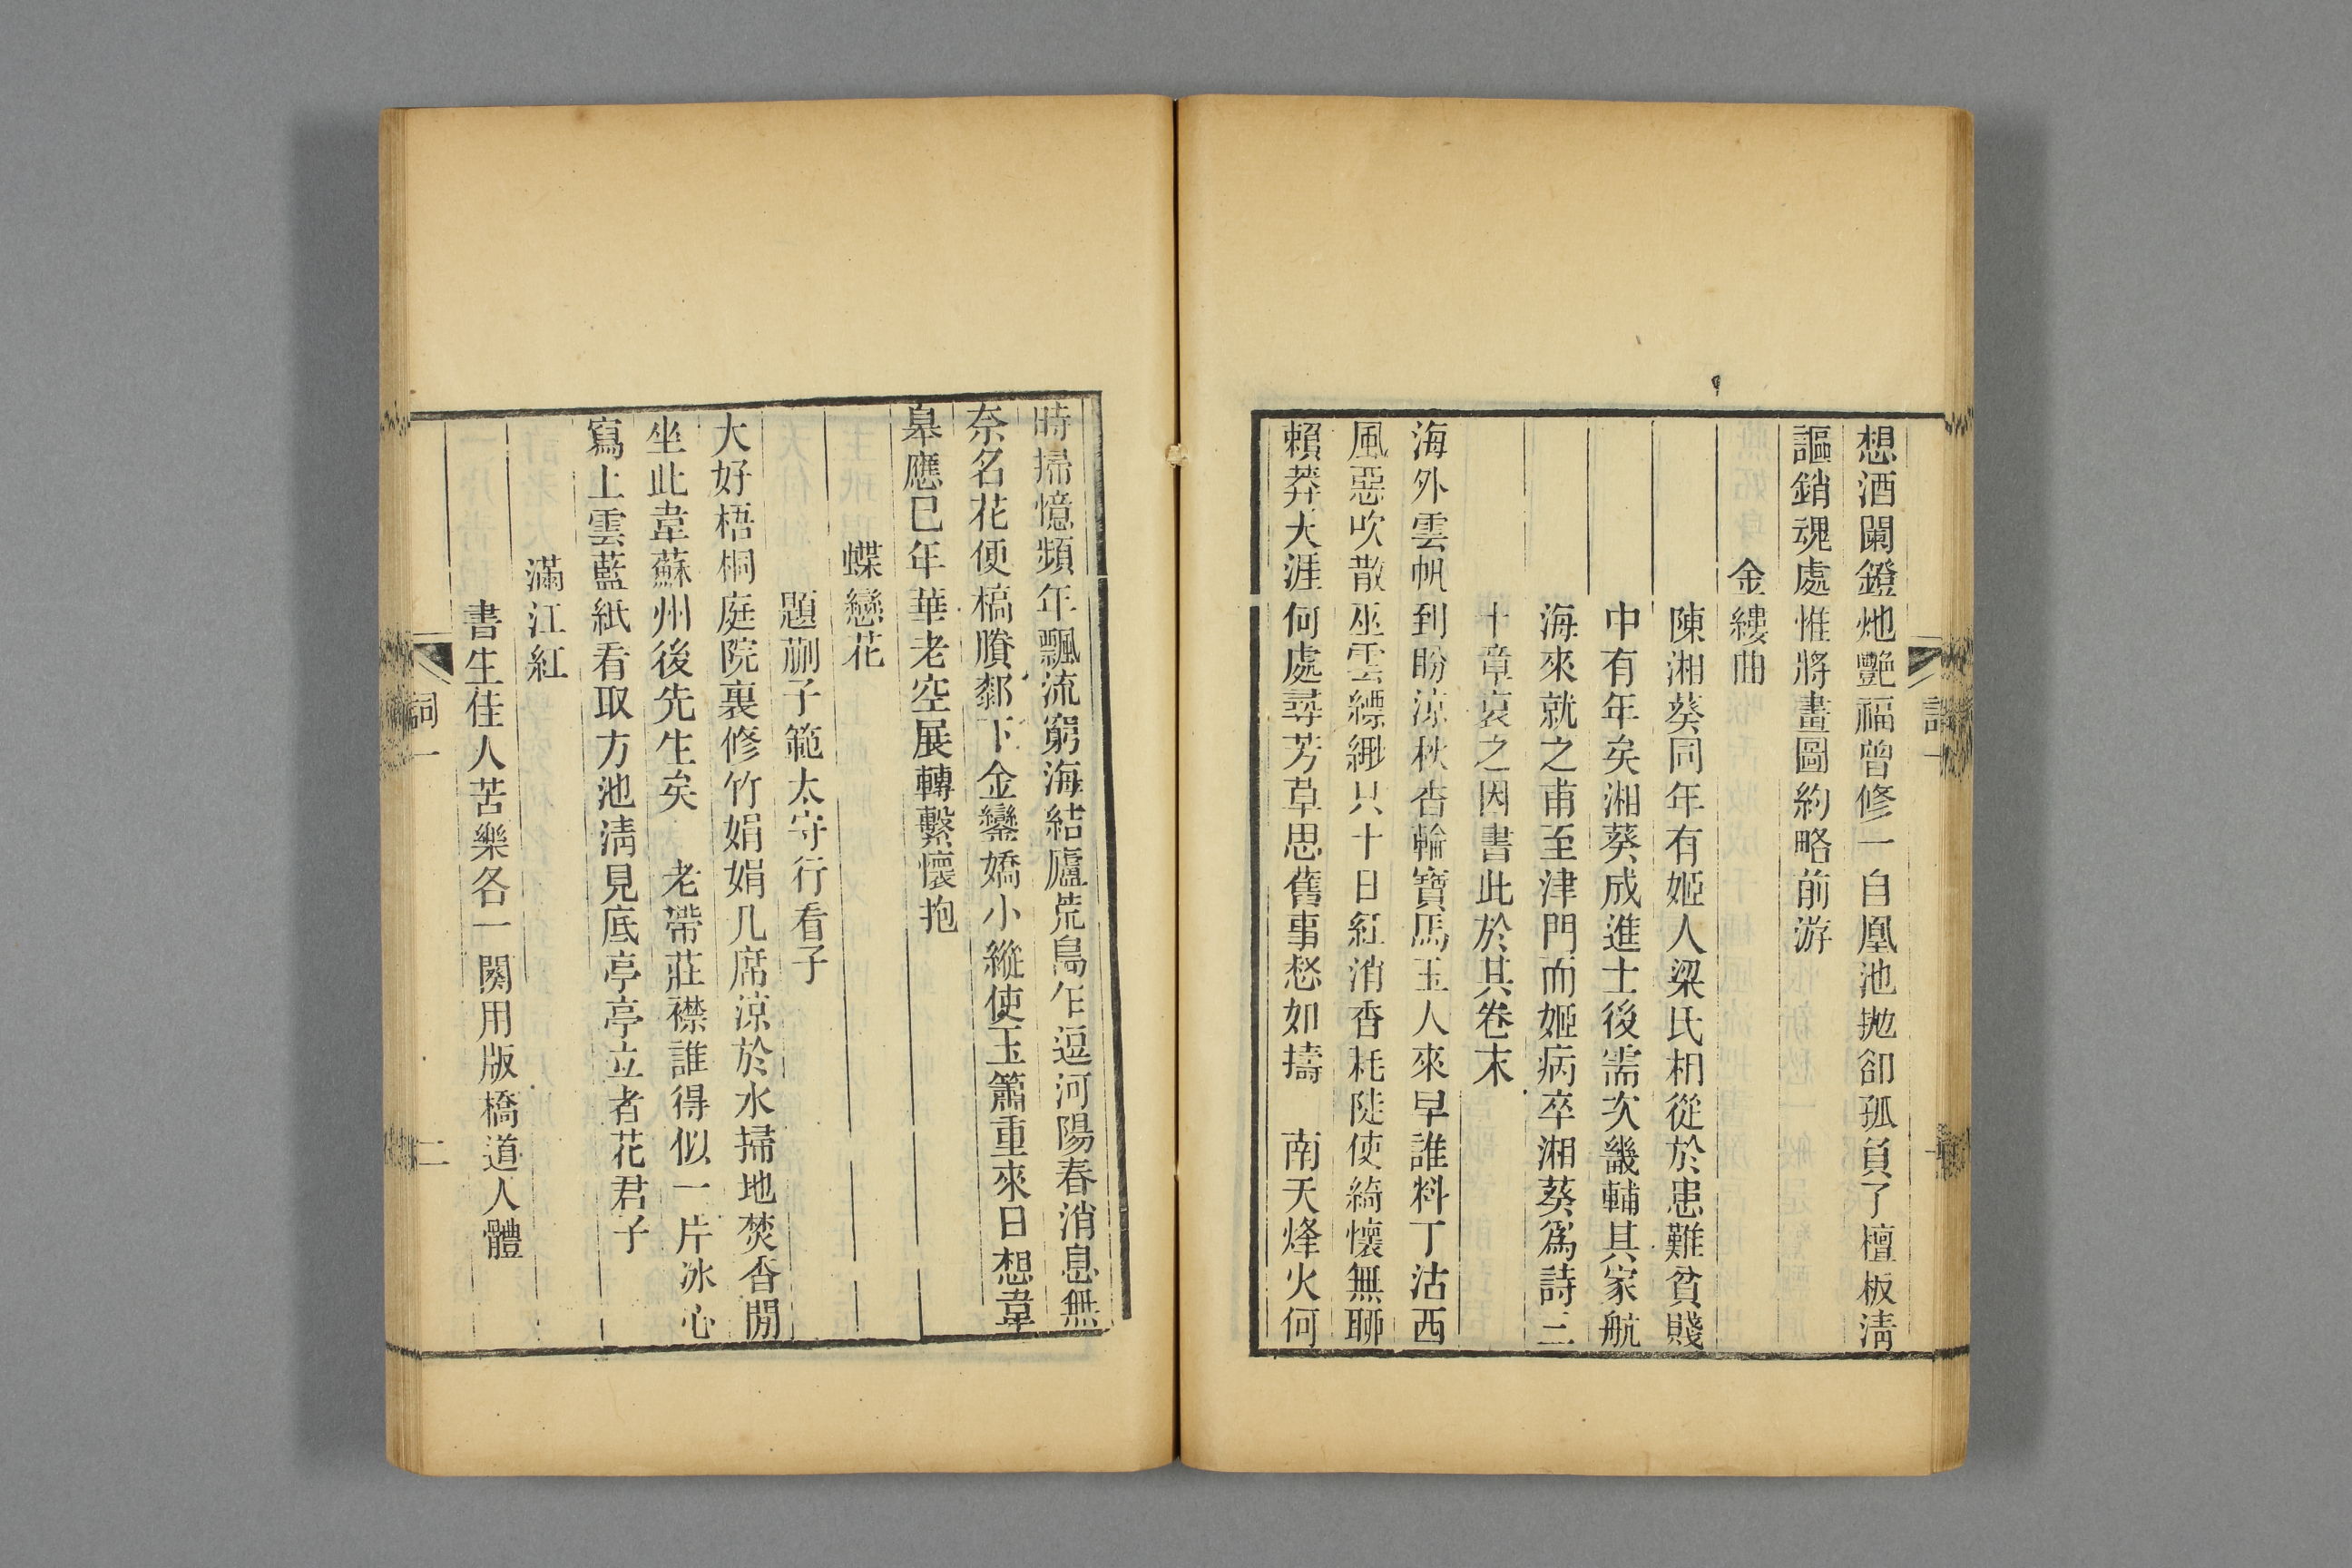 想酒闌鐙灺艷福曾修一自凰池拋卻孤負了檀板淸
謳銷魂處惟將畫圖約略前游
金縷曲
陳湘葵同年有姬人梁氏相從於患難貧賤
中有年矣湘葵成進士後需次畿輔其家航
海來就之甫至津門而姬病卒湘葵爲詩二
十章哀之因書此於其卷末
海外雲帆到盼涼秋香輪寶馬玉人來早誰料丁沽西
風惡吹散巫雲縹緲只十日紅消香耗陡使綺懷無聊
賴莽天涯何處尋芳草思舊事愁如擣　南天烽火何
時掃憶頻年飄流窮海結廬荒島乍逗河陽春消息無
奈名花便槁賸鄴下金鑾嬌小縱使玉簫重來日想韋
皋應已年華老空展轉繫懷抱
蝶戀花
題蒯子範太守行看子
大好梧桐庭院裏修竹娟娟几席涼於水掃地焚香閒
坐此韋蘇州後先生矣　老帶莊襟誰得似一片冰心
寫上雲藍紙看取方池淸見底亭亭立者花君子
滿江紅
書生佳人苦樂各一闋用版橋道人體
詞一
二